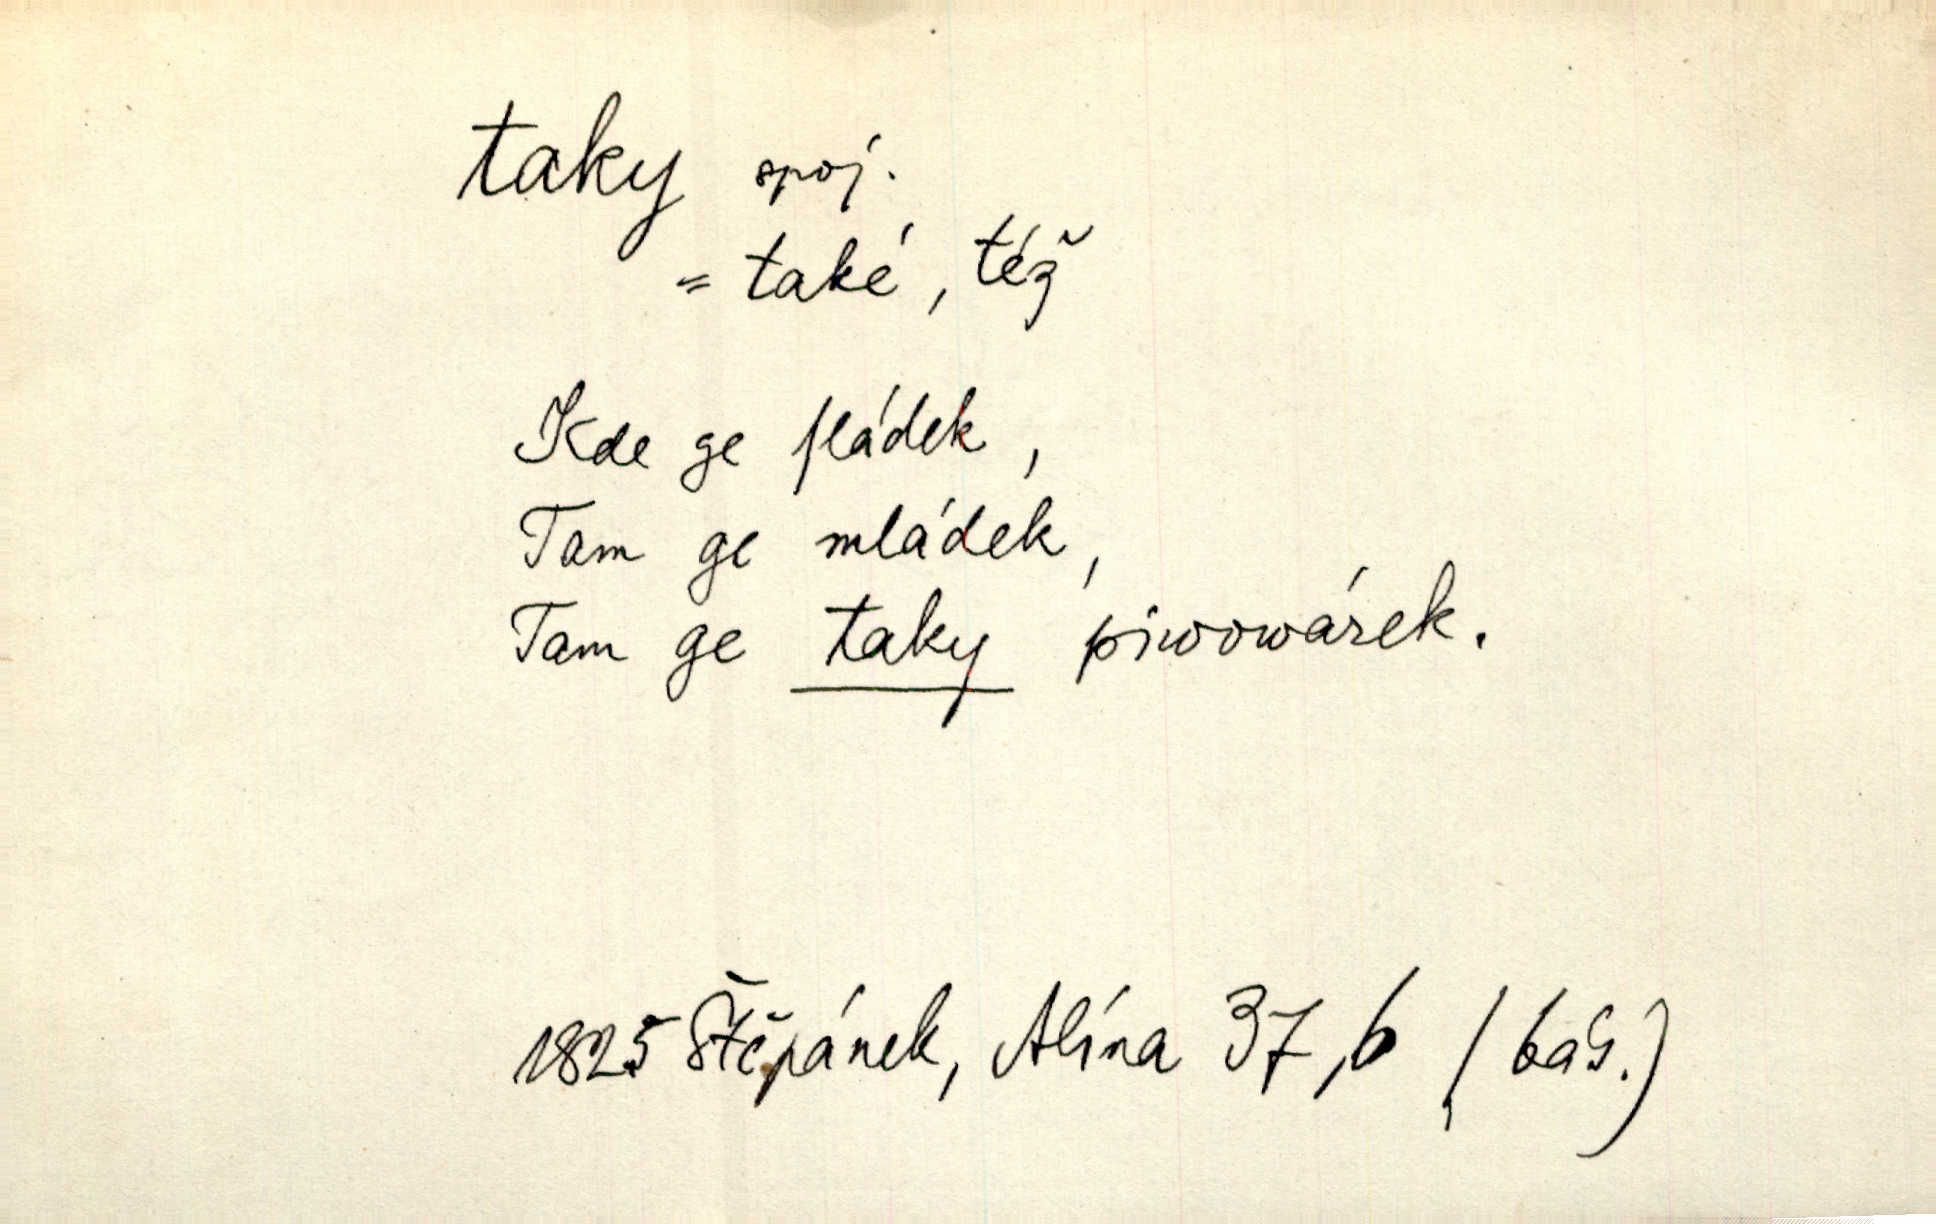 taky spoj.
= také, též
Kde ge sládek,
Tam ge mládek,
Tam ge taky piwowárek.
1825 Štěpánek, Alína 37,6 (bás.)